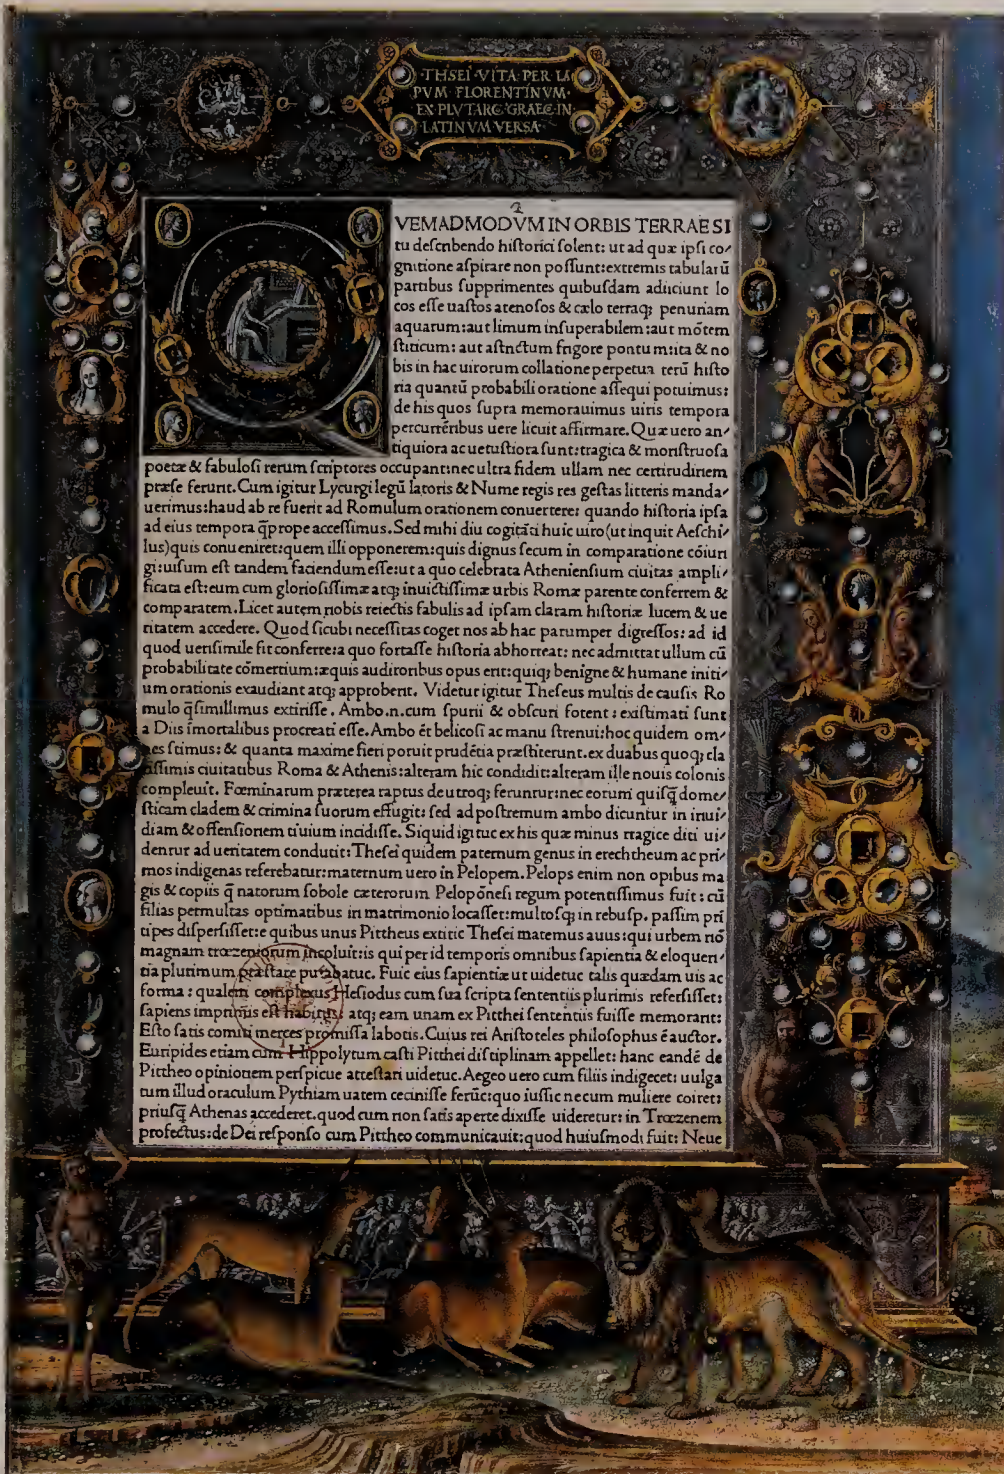 ·THSEI·VITA·PER·LA
PVM·FLORENTINVM·
EX·PLVTARC·GRAEC·IN
LATINVM·VERSA·
Q
VEMADMODVM IN ORBIS TERRAE SI
tu deſcribendo hiſtorici ſolent: ut ad quæ ipſi co/
gnitione aſpirare non poſſunt:extremis tabularū
partibus ſupprimentes quibuſdam adiiciunt lo
cos eſſe uaſtos arenoſos & cælo terraq; penuriam
aquarum:aut limum inſuperabilem:aut mōtem
ſtiticum: aut aſtrictum frigore pontum:ita & no
bis in hac uirorum collatione perpetua rerū hiſto
ria quantū probabili oratione aſſequi potuimus:
de his quos ſupra memorauimus uiris tempora
percurrētibus uere licuit affirmare. Quæ uero an/
tiquiora ac uetuſtiora ſunt:tragica & monſtruoſa
poetæ & fabuloſi rerum ſcriptores occupant:nec ultra fidem ullam nec certitudinem
præſe ferunt. Cum igitur Lycurgi legū latoris & Nume regis res geſtas litteris manda/
uerimus:haud ab re fuerit ad Romulum orationem conuertere: quando hiſtoria ipſa
ad eius tempora q̄prope acceſſimus. Sed mihi diu cogitāti huic uiro (ut inquit Aeſchi/
lus) quis conueniret:quem illi opponerem:quis dignus ſecum in comparatione cōiun
gi:uiſum eſt tandem faciendum eſſe:ut a quo celebrata Athenienſium ciuitas ampli/
ficata eſt:eum cum glorioſiſſimæ atq; inuictiſſimæ urbis Romæ parente conferrem &
compararem. Licet autem nobis reiectis fabulis ad ipſam claram hiſtoriæ lucem & ue
ritatem accedere. Quod ſicubi neceſſitas coget nos ab hac parumper digreſſos: ad id
quod ueriſimile fit conferre:a quo fortaſſe hiſtoria abhorreat: nec admittat ullum cū
probabilitate cōmertium:æquis auditoribus opus erit:quiq; benigne & humane initi/
um orationis exaudiant atq; approbent. Videtur igitur Theſeus multis de cauſis Ro
mulo q̄ſimillimus extitiſſe. Ambo.n.cum ſpurii & obſcuri forent: exiſtimati ſunt
a Diis īmortalibus procreati eſſe. Ambo ēt belicoſi ac manu ſtrenui:hoc quidem om/
nes ſcimus: & quanta maxime fieri potuit prudētia præſtiterunt.ex duabus quoq; cla
riſſimis ciuitatibus Roma & Athenis:alteram hic condidit:alteram ille nouis colonis
compleuit. Fœminarum præterea raptus de utroq; feruntur:nec eorum quiſq̄ dome/
ſticam cladem & crimina ſuorum effugit: ſed ad poſtremum ambo dicuntur in inui/
diam & offenſionem ciuium incidiſſe. Siquid igitur ex his quæ minus tragice dici ui/
dentur ad ueritatem conducit: Theſei quidem paternum genus in erechtheum ac pri/
mos indigenas referebatur:maternum uero in Pelopem. Pelops enim non opibus ma
gis & copiis q̄ natorum ſobole cæterorum Pelopōneſi regum potentiſſimus fuit: cū
filias permultas optimatibus in matrimonio locaſſet:multoſq; in rebuſp. paſſim prī
cipes diſperſiſſet:e quibus unus Pittheus extitit Theſei maternus auus:qui urbem nō
magnam trœzeniorum incoluit:is qui per id temporis omnibus ſapientia & eloquen/
tia plurimum præſtare putabatur. Fuit eius ſapientiæ ut uidetur talis quædam uis ac
forma: qualem complexus Heſiodus cum ſua ſcripta ſententiis plurimis referſiſſet:
ſapiens imprimis eſt habitus: atq; eam unam ex Pitthei ſententiis fuiſſe memorant:
Eſto ſatis comiti merces promiſſa laboris. Cuius rei Ariſtoteles philoſophus ē auctor.
Euripides etiam cum Hippolytum caſti Pitthei diſciplinam appellet: hanc eandē de
Pittheo opinionem perſpicue atteſtari uidetur. Aegeo uero cum filiis indigeret: uulga
tum illud oraculum Pythiam uatem ceciniſſe ferūt:quo iuſſit necum muliere coiret:
priuſq̄ Athenas accederet.quod cum non ſatis aperte dixiſſe uideretur: in Trœzenem
profectus:de Dei reſponſo cum Pittheo communicauit:quod huiuſmodi fuit: Neue